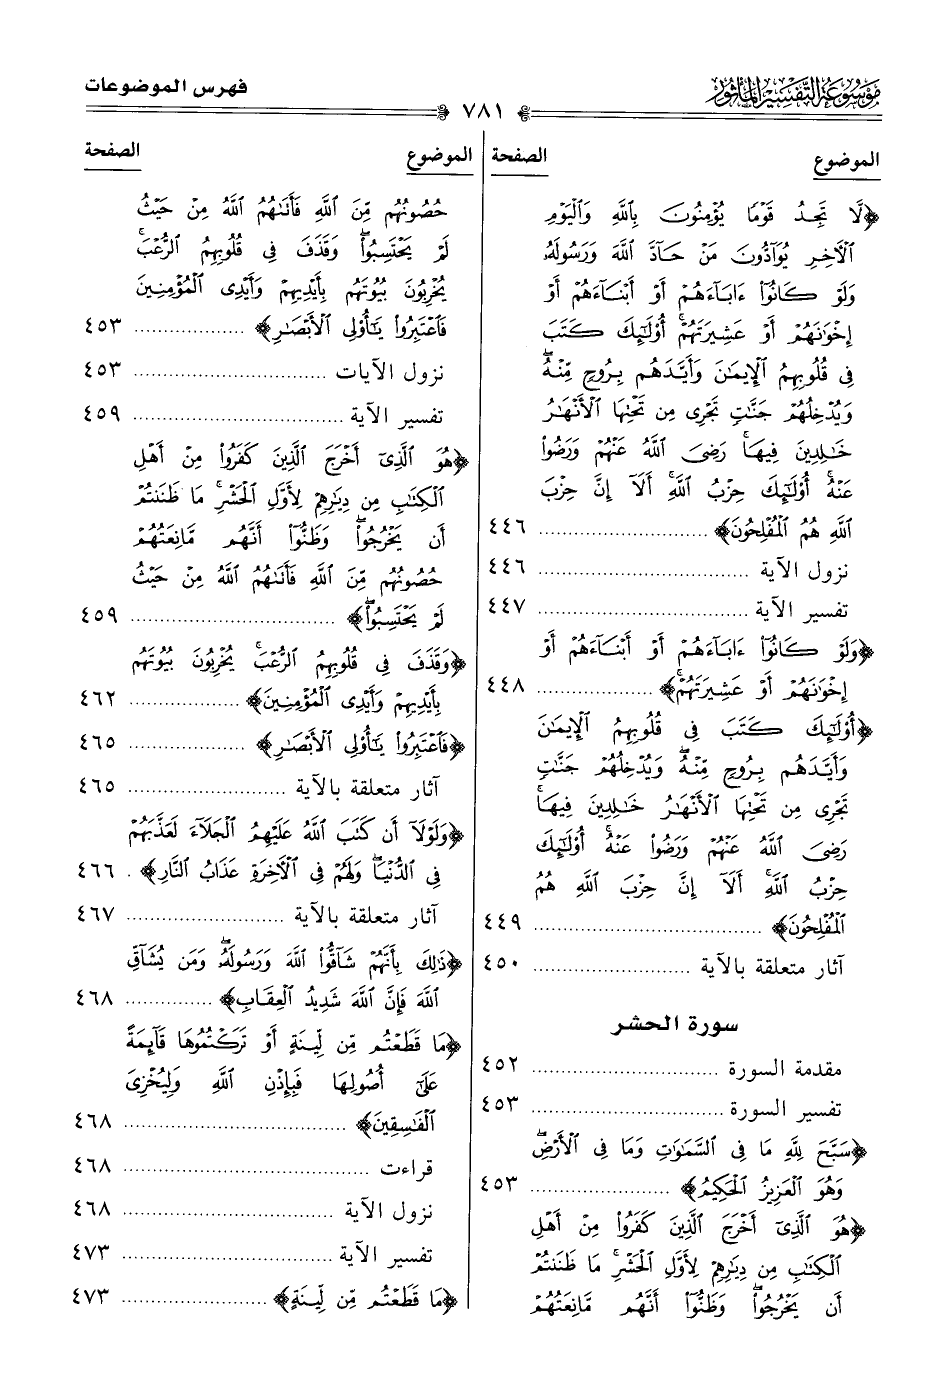 موسوعة التفسير المأثور
فهرس الموضوعات
٧٨١
الموضوع الصفحة
﴿لَّا تَجِدُ قَوْمًا يُؤْمِنُونَ بِٱللَّهِ وَٱلْيَوْمِ
ٱلْـَٔاخِرِ يُوَآدُّونَ مَنْ حَآدَّ ٱللَّهَ وَرَسُولَهُۥ
وَلَوْ كَانُوٓا۟ ءَابَآءَهُمْ أَوْ أَبْنَآءَهُمْ أَوْ
إِخْوَٰنَهُمْ أَوْ عَشِيرَتَهُمْ ۚ أُو۟لَٰٓئِكَ كَتَبَ
فِى قُلُوبِهِمُ ٱلْإِيمَٰنَ وَأَيَّدَهُم بِرُوحٍ مِّنْهُ ۖ
وَيُدْخِلُهُمْ جَنَّٰتٍ تَجْرِى مِن تَحْتِهَا ٱلْأَنْهَٰرُ
خَٰلِدِينَ فِيهَا ۚ رَضِىَ ٱللَّهُ عَنْهُمْ وَرَضُوا۟
عَنْهُ ۚ أُو۟لَٰٓئِكَ حِزْبُ ٱللَّهِ ۚ أَلَآ إِنَّ حِزْبَ
ٱللَّهِ هُمُ ٱلْمُفْلِحُونَ﴾ ........ ٤٤٦
نزول الآية ........ ٤٤٦
تفسير الآية ........ ٤٤٧
﴿وَلَوْ كَانُوٓا۟ ءَابَآءَهُمْ أَوْ أَبْنَآءَهُمْ أَوْ
إِخْوَٰنَهُمْ أَوْ عَشِيرَتَهُمْ ۚ﴾ ........ ٤٤٨
﴿أُو۟لَٰٓئِكَ كَتَبَ فِى قُلُوبِهِمُ ٱلْإِيمَٰنَ
وَأَيَّدَهُم بِرُوحٍ مِّنْهُ ۖ وَيُدْخِلُهُمْ جَنَّٰتٍ
تَجْرِى مِن تَحْتِهَا ٱلْأَنْهَٰرُ خَٰلِدِينَ فِيهَا ۚ
رَضِىَ ٱللَّهُ عَنْهُمْ وَرَضُوا۟ عَنْهُ ۚ أُو۟لَٰٓئِكَ
حِزْبُ ٱللَّهِ ۚ أَلَآ إِنَّ حِزْبَ ٱللَّهِ هُمُ
ٱلْمُفْلِحُونَ﴾ ........ ٤٤٩
آثار متعلقة بالآية ........ ٤٥٠
سورة الحشر
مقدمة السورة ........ ٤٥٢
تفسير السورة ........ ٤٥٣
﴿سَبَّحَ لِلَّهِ مَا فِى ٱلسَّمَٰوَٰتِ وَمَا فِى ٱلْأَرْضِ ۖ
وَهُوَ ٱلْعَزِيزُ ٱلْحَكِيمُ﴾ ........ ٤٥٣
﴿هُوَ ٱلَّذِىٓ أَخْرَجَ ٱلَّذِينَ كَفَرُوا۟ مِنْ أَهْلِ
ٱلْكِتَٰبِ مِن دِيَٰرِهِمْ لِأَوَّلِ ٱلْحَشْرِ ۚ مَا ظَنَنتُمْ
أَن يَخْرُجُوا۟ ۖ وَظَنُّوٓا۟ أَنَّهُم مَّانِعَتُهُمْ
الموضوع الصفحة
حُصُونُهُم مِّنَ ٱللَّهِ فَأَتَىٰهُمُ ٱللَّهُ مِنْ حَيْثُ
لَمْ يَحْتَسِبُوا۟ ۖ وَقَذَفَ فِى قُلُوبِهِمُ ٱلرُّعْبَ ۚ
يُخْرِبُونَ بُيُوتَهُم بِأَيْدِيهِمْ وَأَيْدِى ٱلْمُؤْمِنِينَ
فَٱعْتَبِرُوا۟ يَٰٓأُو۟لِى ٱلْأَبْصَٰرِ﴾ ........ ٤٥٣
نزول الآيات ........ ٤٥٣
تفسير الآية ........ ٤٥٩
﴿هُوَ ٱلَّذِىٓ أَخْرَجَ ٱلَّذِينَ كَفَرُوا۟ مِنْ أَهْلِ
ٱلْكِتَٰبِ مِن دِيَٰرِهِمْ لِأَوَّلِ ٱلْحَشْرِ ۚ مَا ظَنَنتُمْ
أَن يَخْرُجُوا۟ ۖ وَظَنُّوٓا۟ أَنَّهُم مَّانِعَتُهُمْ
حُصُونُهُم مِّنَ ٱللَّهِ فَأَتَىٰهُمُ ٱللَّهُ مِنْ حَيْثُ
لَمْ يَحْتَسِبُوا۟ ۖ﴾ ........ ٤٥٩
﴿وَقَذَفَ فِى قُلُوبِهِمُ ٱلرُّعْبَ ۚ يُخْرِبُونَ بُيُوتَهُم
بِأَيْدِيهِمْ وَأَيْدِى ٱلْمُؤْمِنِينَ﴾ ........ ٤٦٢
﴿فَٱعْتَبِرُوا۟ يَٰٓأُو۟لِى ٱلْأَبْصَٰرِ﴾ ........ ٤٦٥
آثار متعلقة بالآية ........ ٤٦٥
﴿وَلَوْلَآ أَن كَتَبَ ٱللَّهُ عَلَيْهِمُ ٱلْجَلَآءَ لَعَذَّبَهُمْ
فِى ٱلدُّنْيَا ۖ وَلَهُمْ فِى ٱلْـَٔاخِرَةِ عَذَابُ ٱلنَّارِ﴾ . ٤٦٦
آثار متعلقة بالآية ........ ٤٦٧
﴿ذَٰلِكَ بِأَنَّهُمْ شَآقُّوا۟ ٱللَّهَ وَرَسُولَهُۥ ۖ وَمَن يُشَآقِّ
ٱللَّهَ فَإِنَّ ٱللَّهَ شَدِيدُ ٱلْعِقَابِ﴾ ........ ٤٦٨
﴿مَا قَطَعْتُم مِّن لِّينَةٍ أَوْ تَرَكْتُمُوهَا قَآئِمَةً
عَلَىٰٓ أُصُولِهَا فَبِإِذْنِ ٱللَّهِ وَلِيُخْزِىَ
ٱلْفَٰسِقِينَ﴾ ........ ٤٦٨
قراءت ........ ٤٦٨
نزول الآية ........ ٤٦٨
تفسير الآية ........ ٤٧٣
﴿مَا قَطَعْتُم مِّن لِّينَةٍ﴾ ........ ٤٧٣